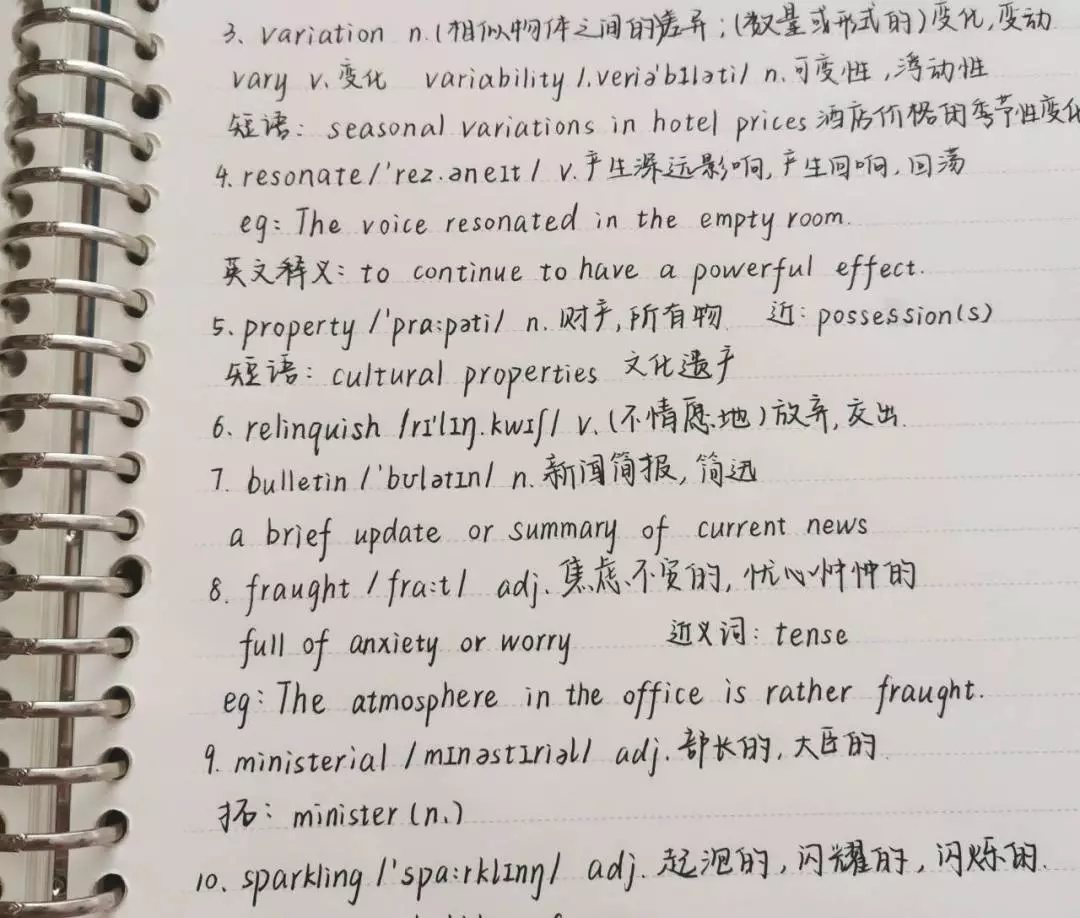 3. variation n.(相似物体之间的)差异;(数量或形式的)变化,变动
vary v.变化 variability /.veriə'bɪləti/ n.可变性,浮动性
短语: seasonal variations in hotel prices 酒店价格的季节性变化
4. resonate /'rez.əneɪt/ v.产生深远影响,产生回响,回荡
eg: The voice resonated in the empty room.
英文释义: to continue to have a powerful effect.
5. property /'pra:pəti/ n. 财产,所有物 近: possession(s)
短语: cultural properties 文化遗产
6. relinquish /rɪ'lɪŋ.kwɪʃ/ v.(不情愿地)放弃,交出.
7. bulletin /'bʊlətɪn/ n.新闻简报,简迅
a brief update or summary of current news
8. fraught /fra:t/ adj.焦虑不安的,忧心忡忡的
full of anxiety or worry 近义词: tense
eg: The atmosphere in the office is rather fraught.
9. ministerial /mɪnəstɪriəl/ adj.部长的,大臣的
拓: minister (n.)
10. sparkling /'spa:rklɪŋ/ adj.起泡的,闪耀的,闪烁的.